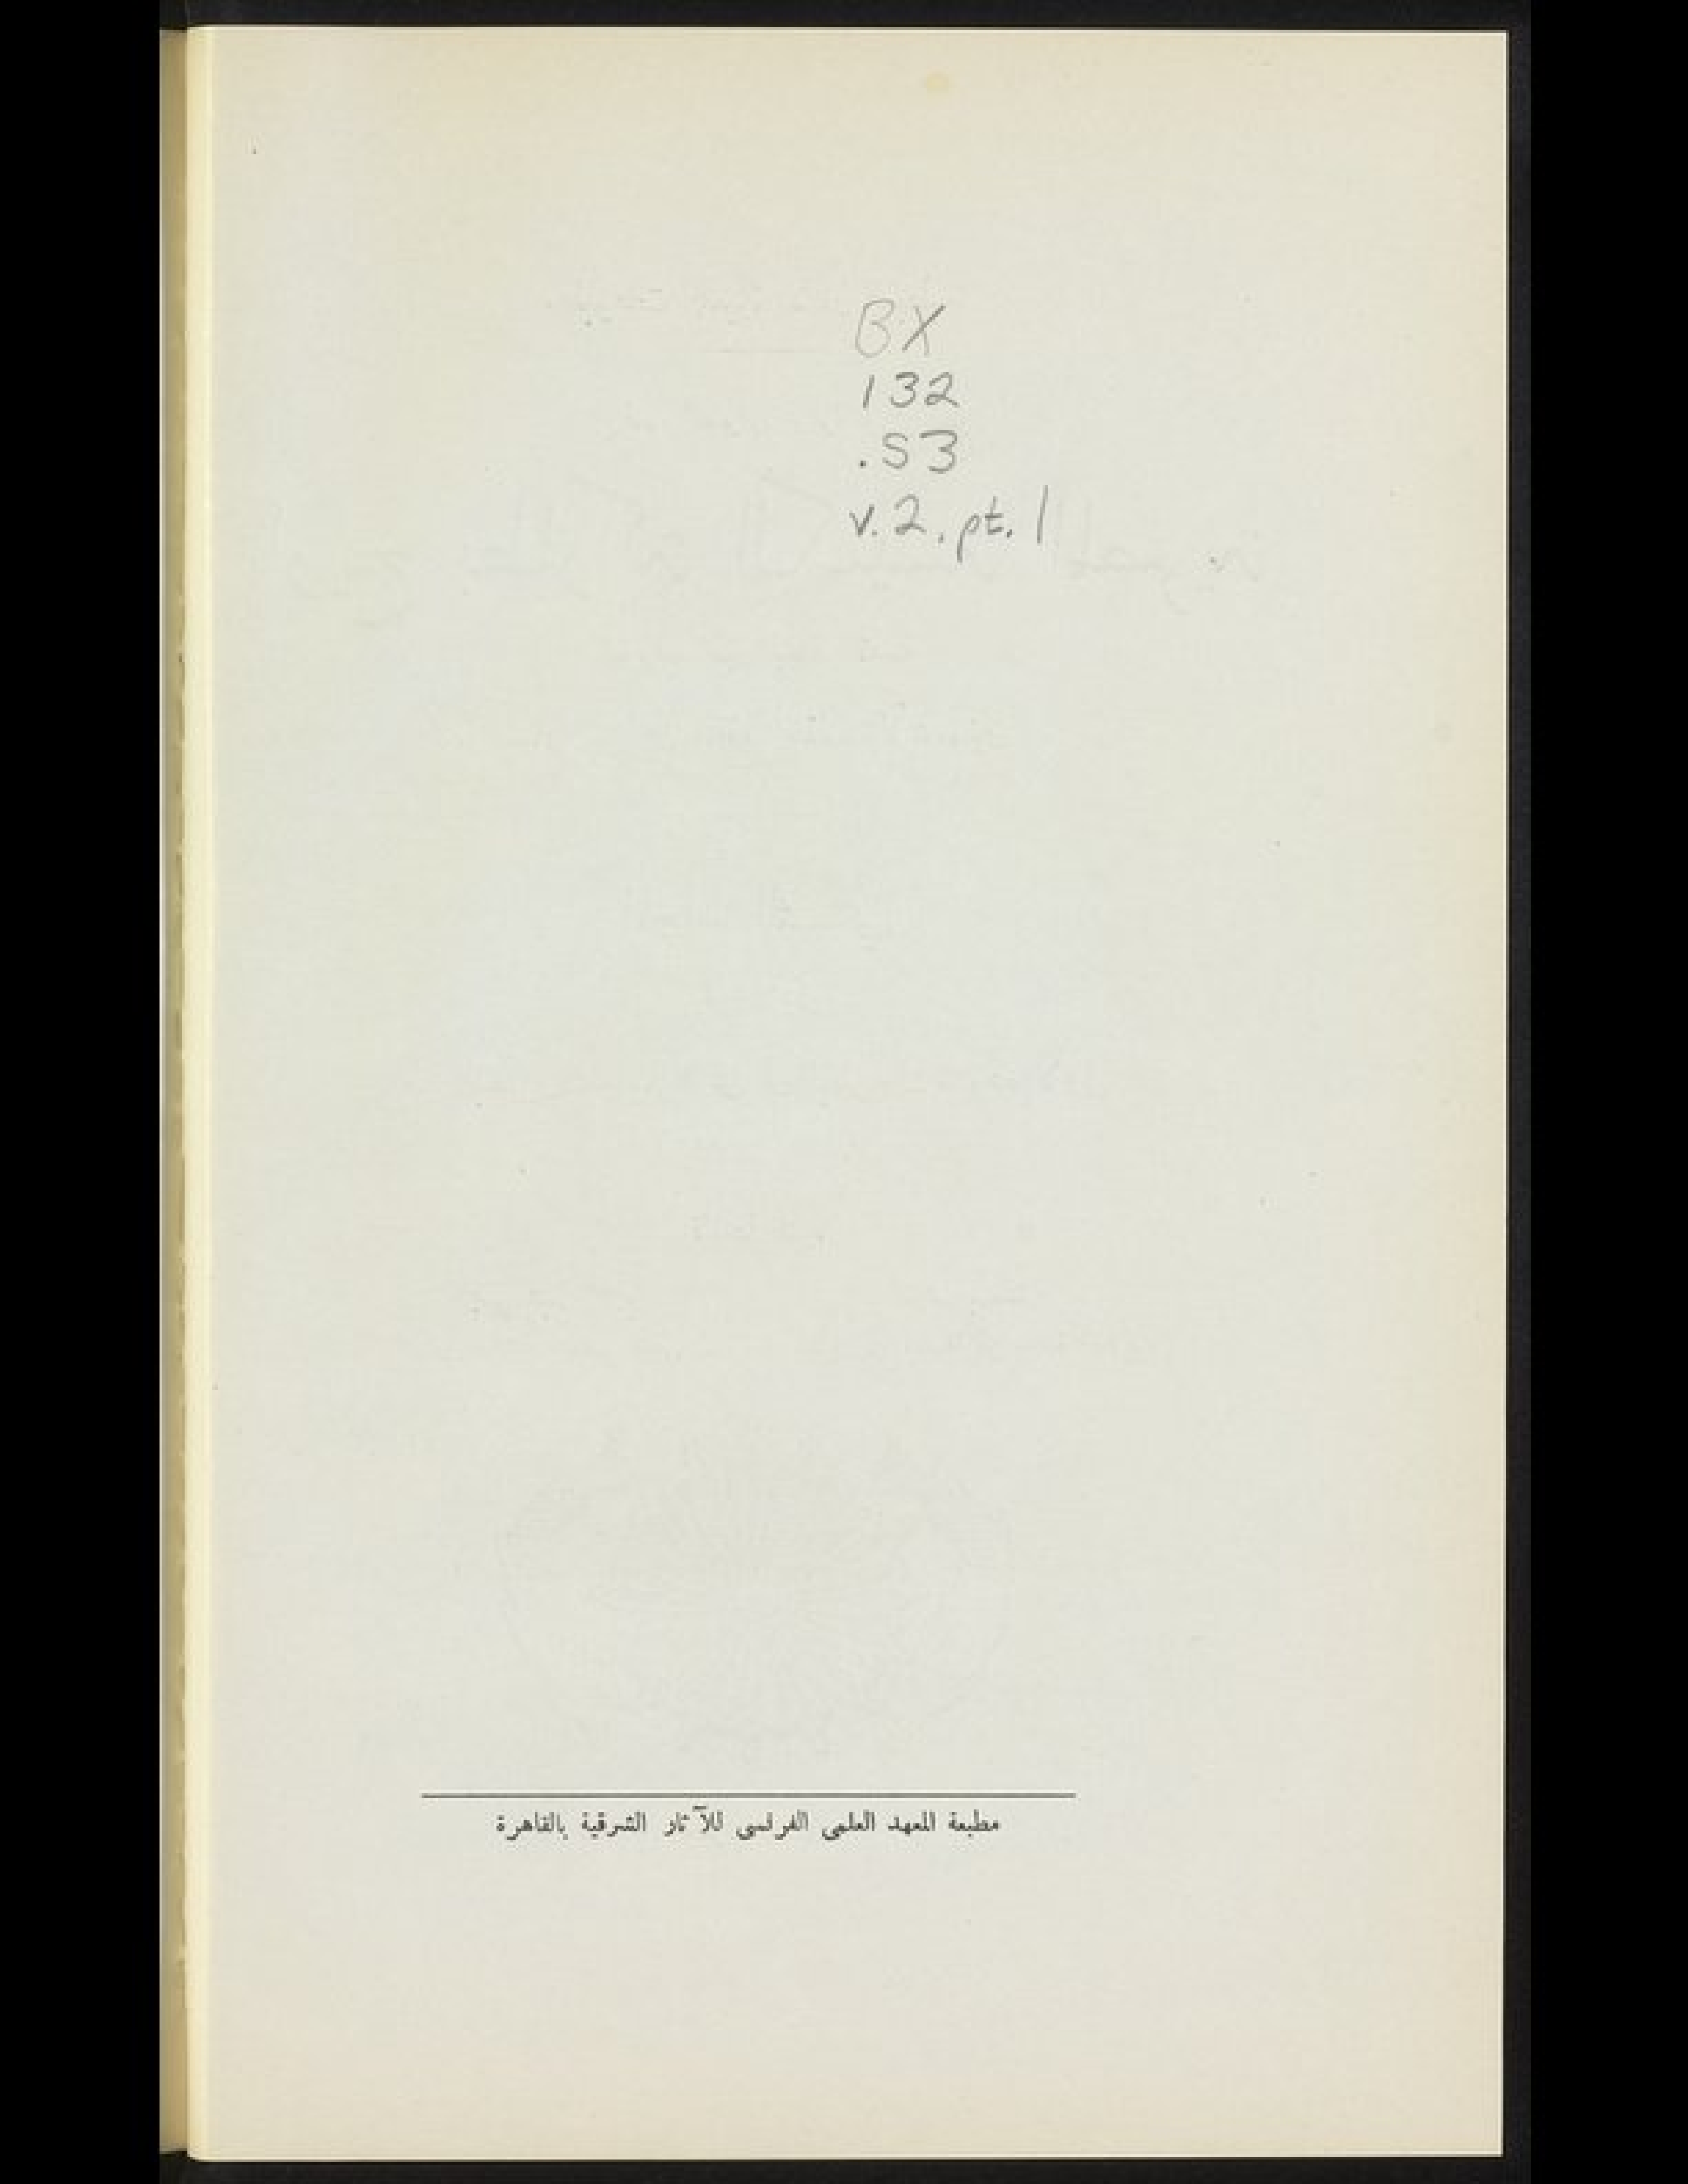 BX
132
.S3
v.2, pt. 1
مطبعة المعهد العلمى الفرنسى للآثار الشرقية بالقاهرة